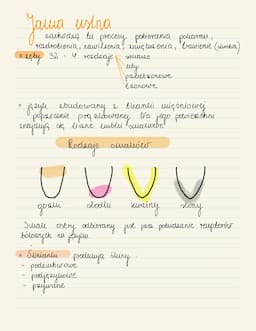 Jama ustna
zachodzą tu procesy pobierania pokarmu,
rozdrobienia, nawilżenia, zmiękczenia, trawienie (skrobia)
• zęby 32 - 4 rodzaje
sieczne
kły
przedtrzonowe
trzonowe
• język zbudowany z tkanki mięśniowej
poprzecznie prążkowanej. Na jego powierzchni
znajdują się liczne kubki smakowe
Rodzaje smaków
gorzki słodki kwaśny słony
Smak ostry odbierany jest przez pobudzanie receptorów
bólowych na języku.
• Ślinianki produkują ślinę
- podżuchwowe
- podjęzykowe
- przyuszne